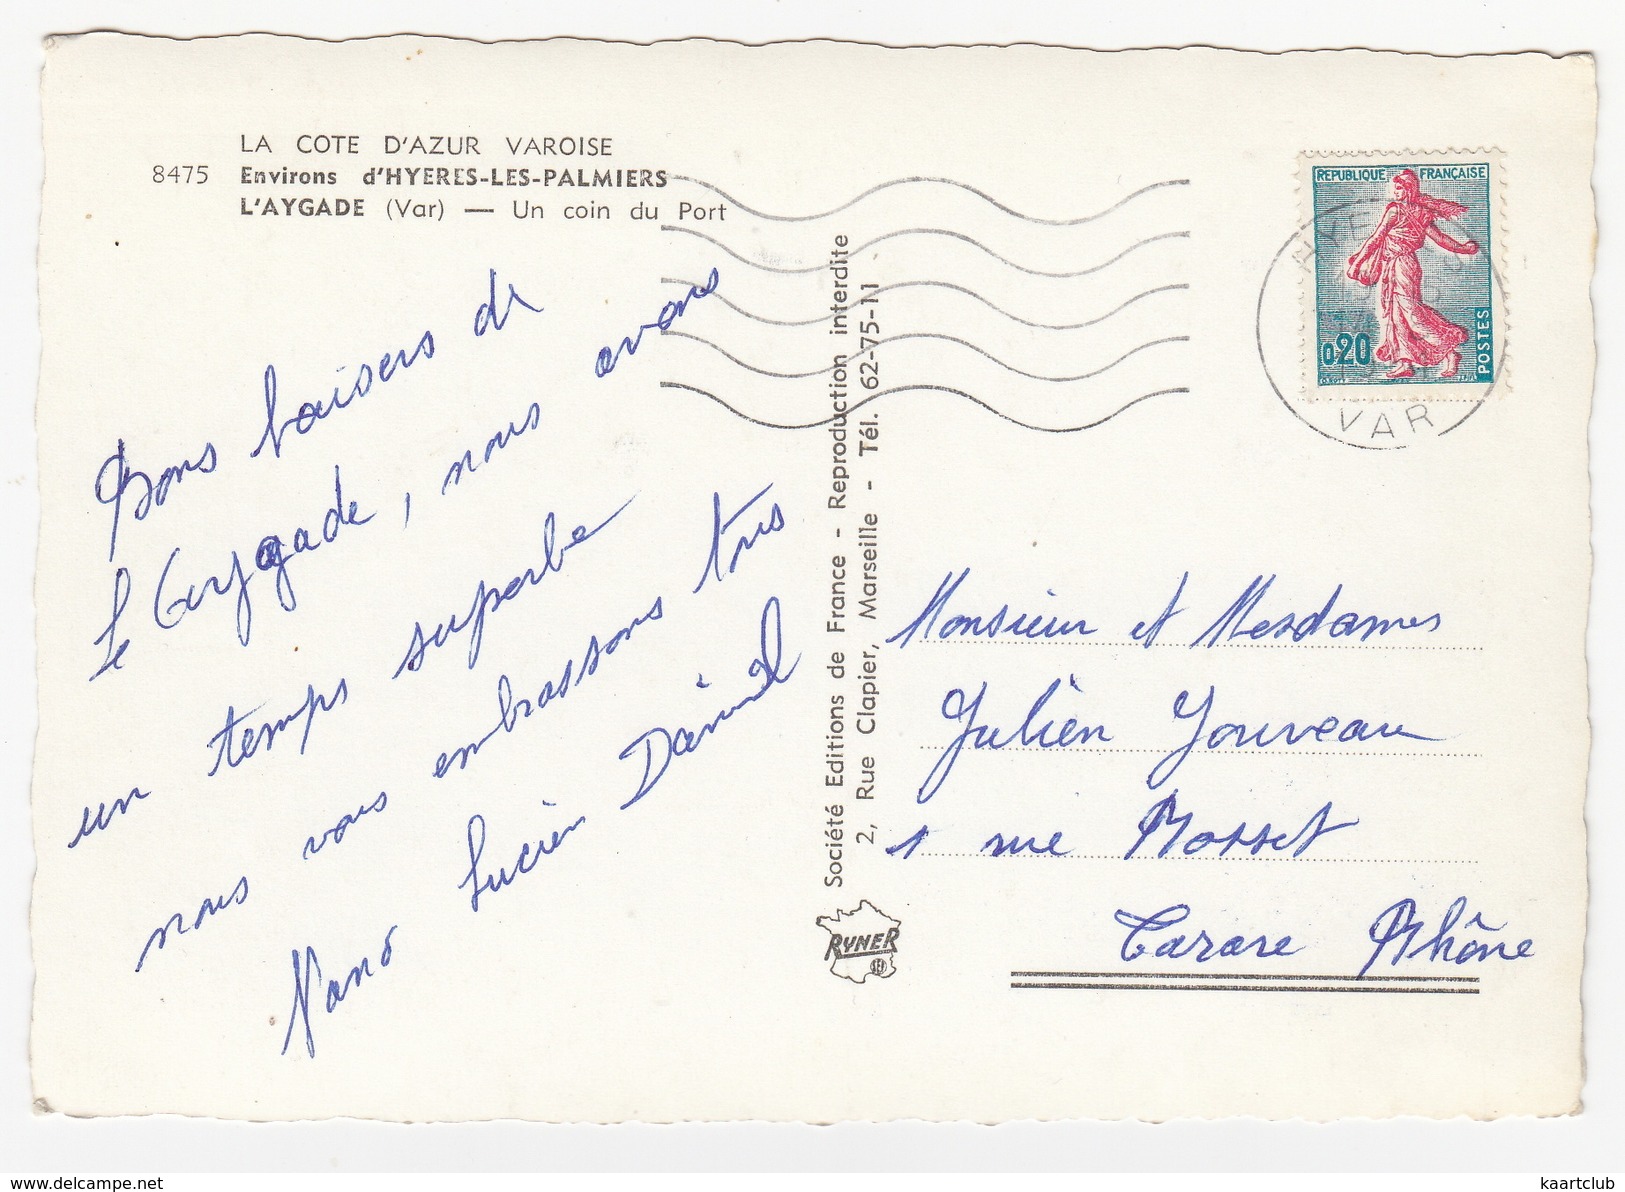 LA COTE D'AZUR VAROISE
8475 Environs d'HYERES-LES-PALMIERS
L'AYGADE (Var) — Un coin du Port
Bons baisers de
Le Ceygade, nous avons
un temps superbe
nous vous embrassons tous
Nano Lucien Daniel
Société Editions de France - Reproduction interdite
2, Rue Clapier, Marseille - Tél. 62-75-11
RYNER
REPUBLIQUE FRANÇAISE
0,20
POSTES
VAR
Monsieur et Mesdames
Julien Jouveau
1 rue Mosset
Tarare Rhône
www.delcampe.net
kaartclub